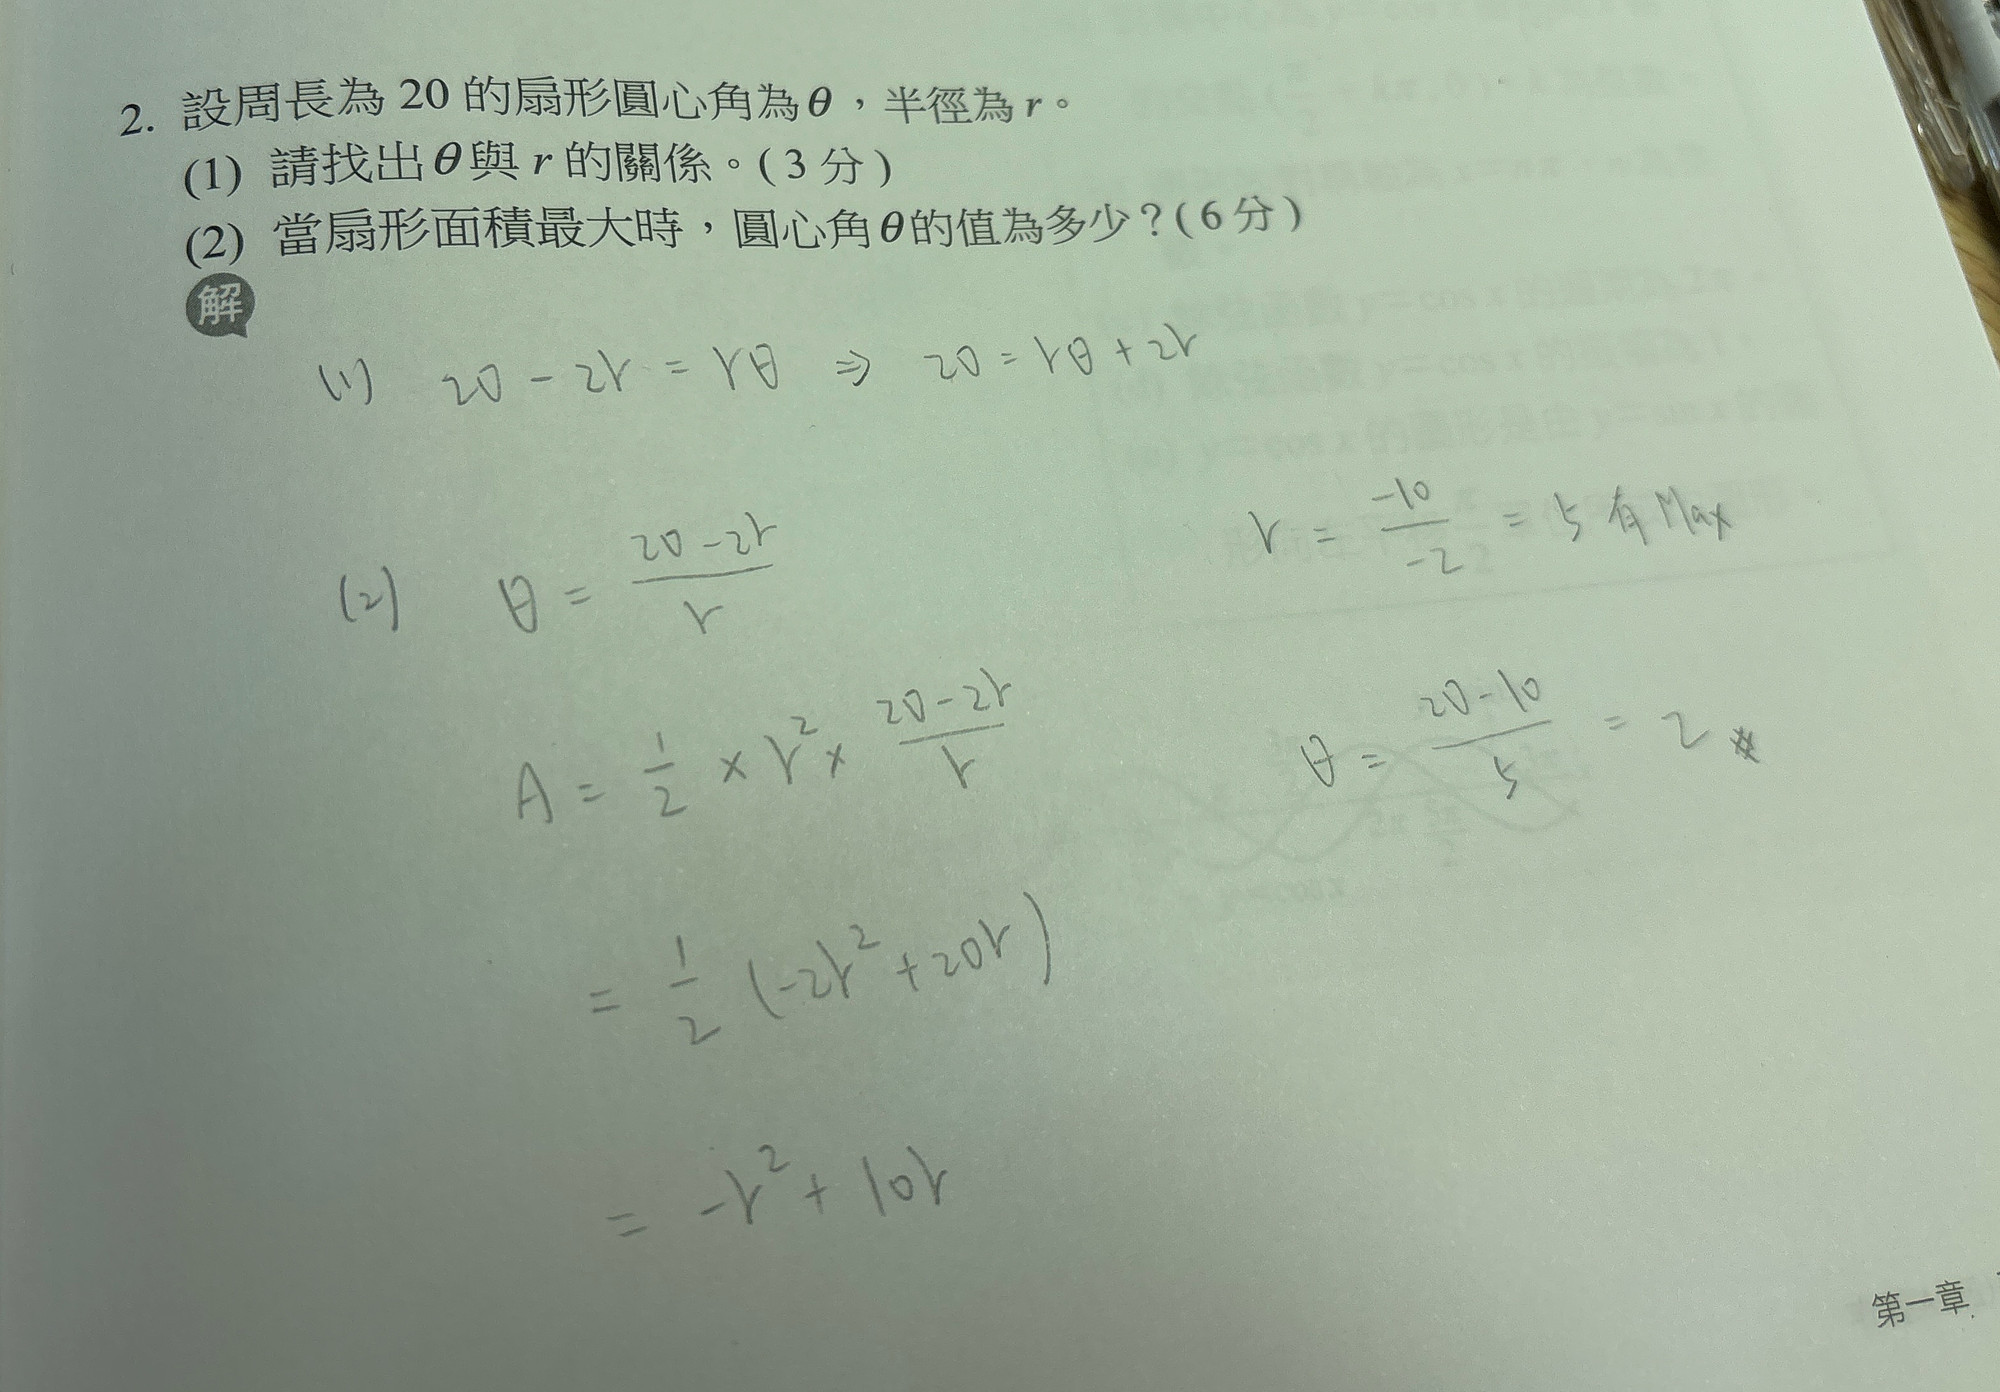 2. 設周長為 20 的扇形圓心角為θ，半徑為 r。
(1) 請找出θ與 r 的關係。(3分)
(2) 當扇形面積最大時，圓心角θ的值為多少？(6分)
解
(1) 20-2r=rθ ⇒ 20=rθ+2r
(2) θ=\frac{20-2r}{r}
A=\frac{1}{2}×r²×\frac{20-2r}{r}
=\frac{1}{2}(-2r²+20r)
=-r²+10r
r=\frac{-10}{-2}=5有Max
θ=\frac{20-10}{5}=2#
第一章